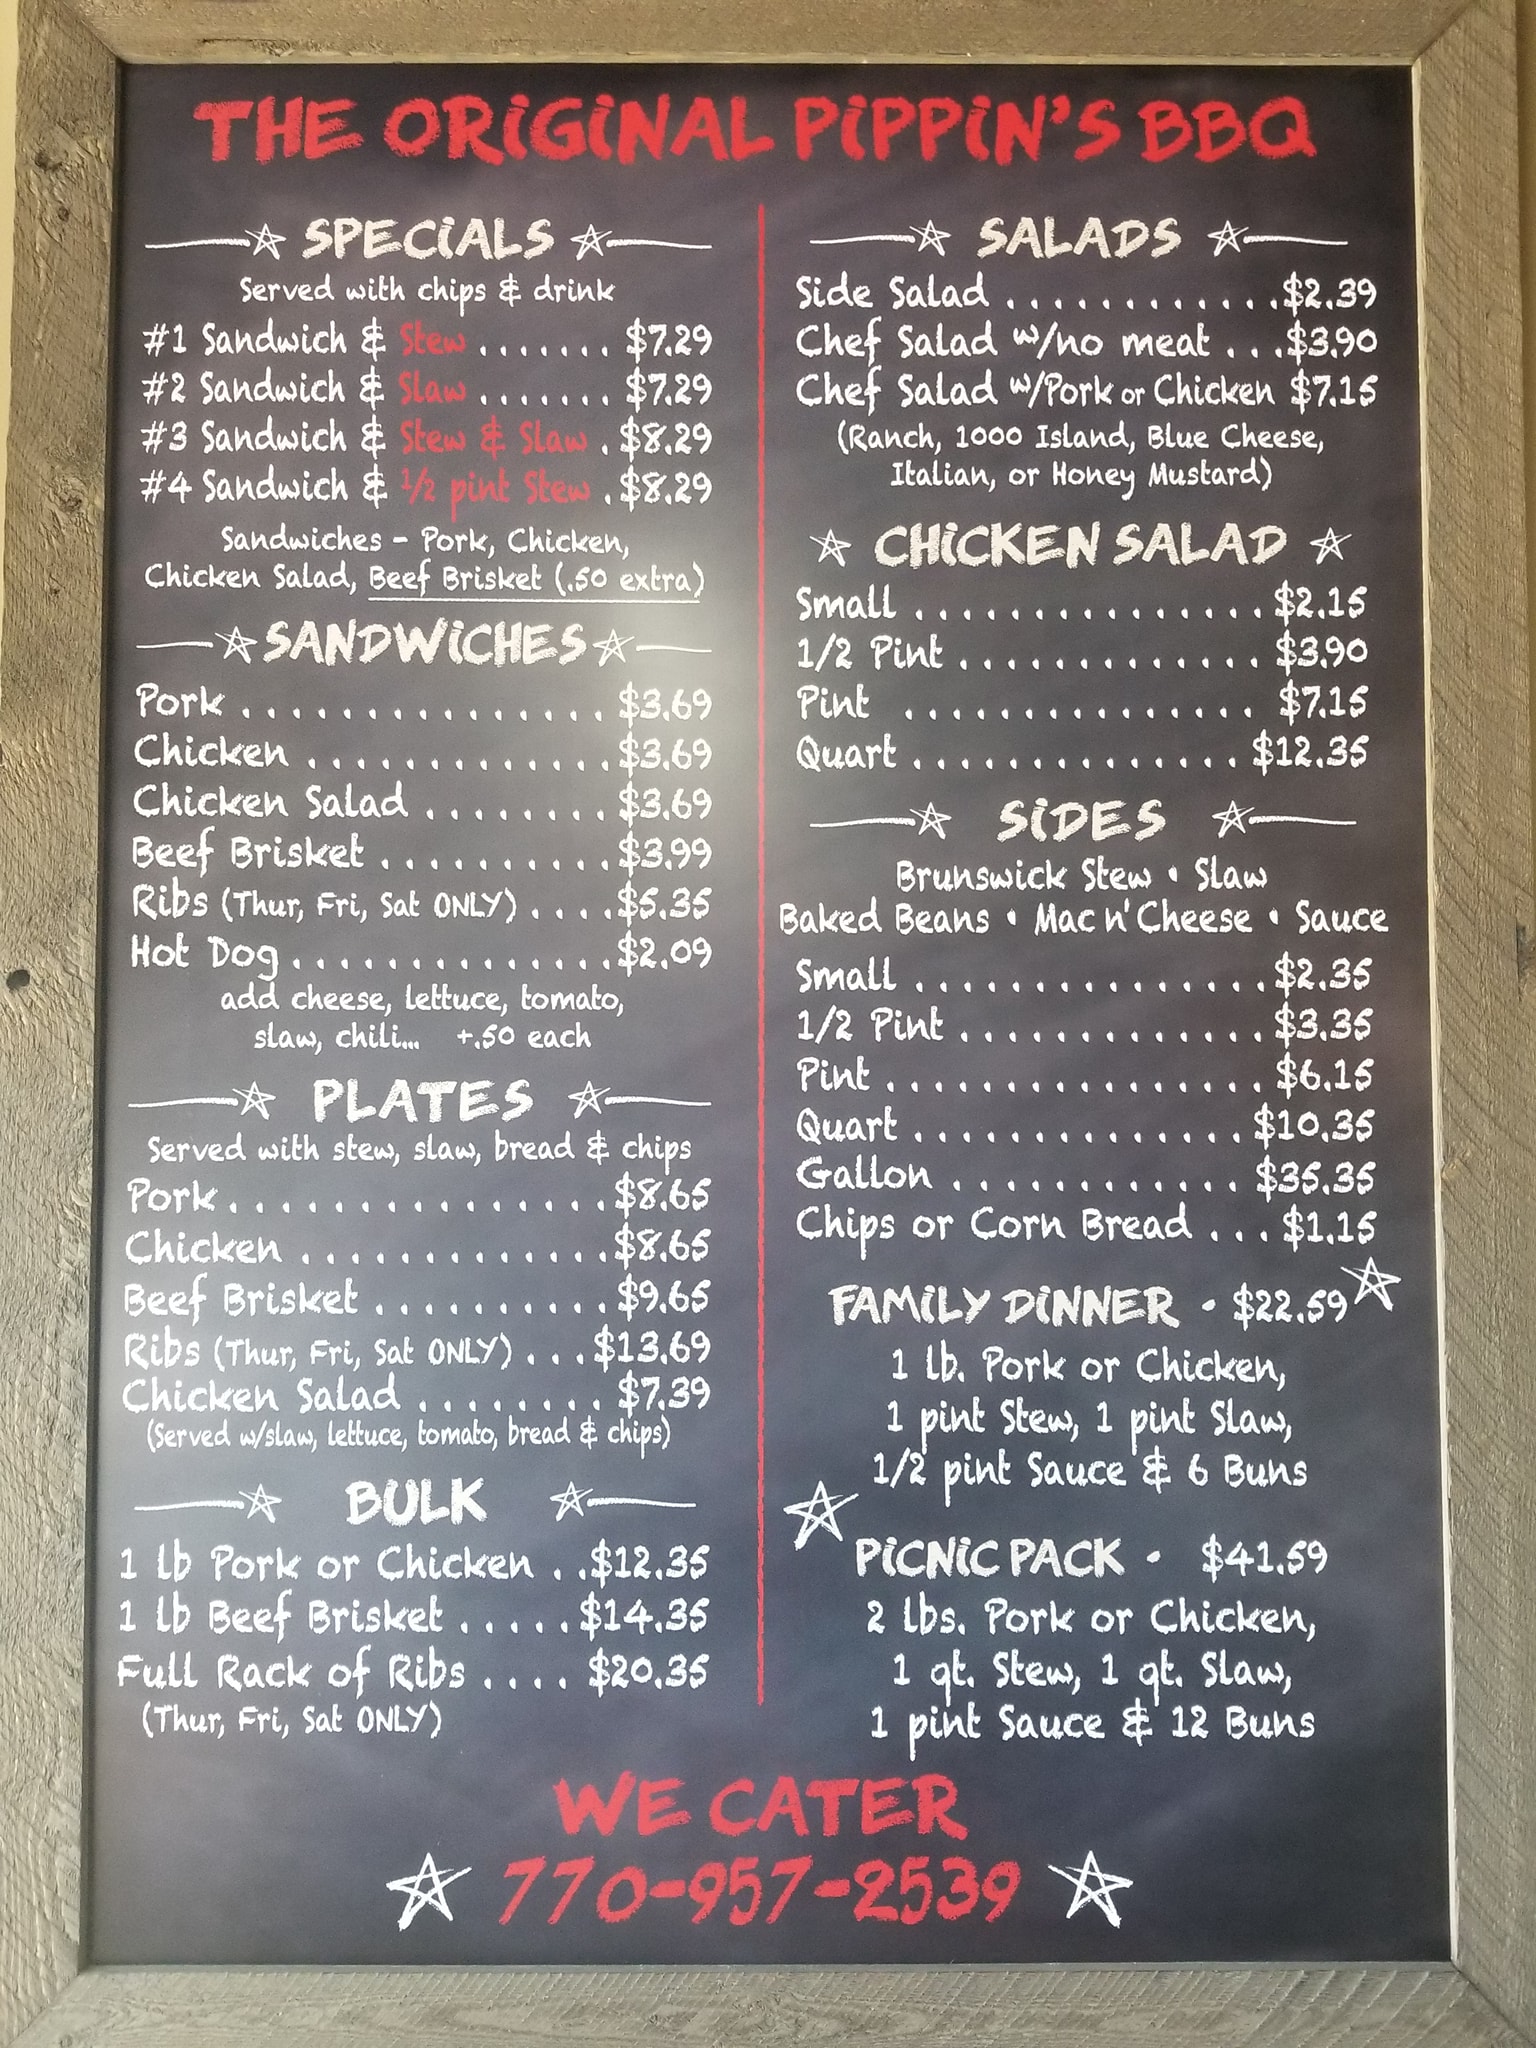 THE ORIGINAL PIPPIN'S BBQ
SPECIALS
Served with chips & drink
#1 Sandwich & Stew ....... $7.29
#2 Sandwich & Slaw ....... $7.29
#3 Sandwich & Stew & Slaw . $8.29
#4 Sandwich & 1/2 pint Stew . $8.29
Sandwiches - Pork, Chicken,
Chicken Salad, Beef Brisket (.50 extra)
SANDWICHES
Pork ............... $3.69
Chicken ............. $3.69
Chicken Salad ........ $3.69
Beef Brisket .......... $3.99
Ribs (Thur, Fri, Sat ONLY) .... $5.35
Hot Dog .............. $2.09
add cheese, lettuce, tomato,
slaw, chili... +.50 each
PLATES
Served with stew, slaw, bread & chips
Pork ................ $8.65
Chicken ............. $8.65
Beef Brisket .......... $9.65
Ribs (Thur, Fri, Sat ONLY) ... $13.69
Chicken Salad ........ $7.39
(Served w/slaw, lettuce, tomato, bread & chips)
BULK
1 lb Pork or Chicken .. $12.35
1 lb Beef Brisket ..... $14.35
Full Rack of Ribs .... $20.35
(Thur, Fri, Sat ONLY)
SALADS
Side Salad ............ $2.39
Chef Salad w/no meat ... $3.90
Chef Salad w/Pork or Chicken $7.15
(Ranch, 1000 Island, Blue Cheese,
Italian, or Honey Mustard)
CHICKEN SALAD
Small ............... $2.15
1/2 Pint ............. $3.90
Pint ............... $7.15
Quart .............. $12.35
SIDES
Brunswick Stew • Slaw
Baked Beans • Mac n' Cheese • Sauce
Small ............... $2.35
1/2 Pint ............. $3.35
Pint ................ $6.15
Quart .............. $10.35
Gallon ............. $35.35
Chips or Corn Bread ... $1.15
FAMILY DINNER • $22.59
1 lb. Pork or Chicken,
1 pint Stew, 1 pint Slaw,
1/2 pint Sauce & 6 Buns
PICNIC PACK • $41.59
2 lbs. Pork or Chicken,
1 qt. Stew, 1 qt. Slaw,
1 pint Sauce & 12 Buns
WE CATER
770-957-2539